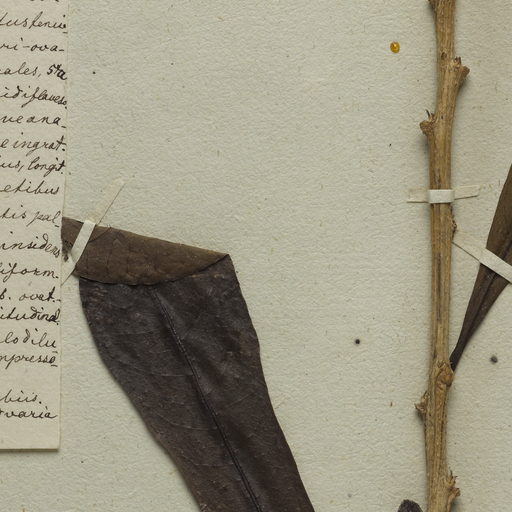 ri-ova-
ales, 5ta
idiflaves
ve ana-
e ingrat.
us, longit.
etibus
tis pal
insidens
iform
s. ovat.
itudinal.
lodilu
mpresse
biis.
varia